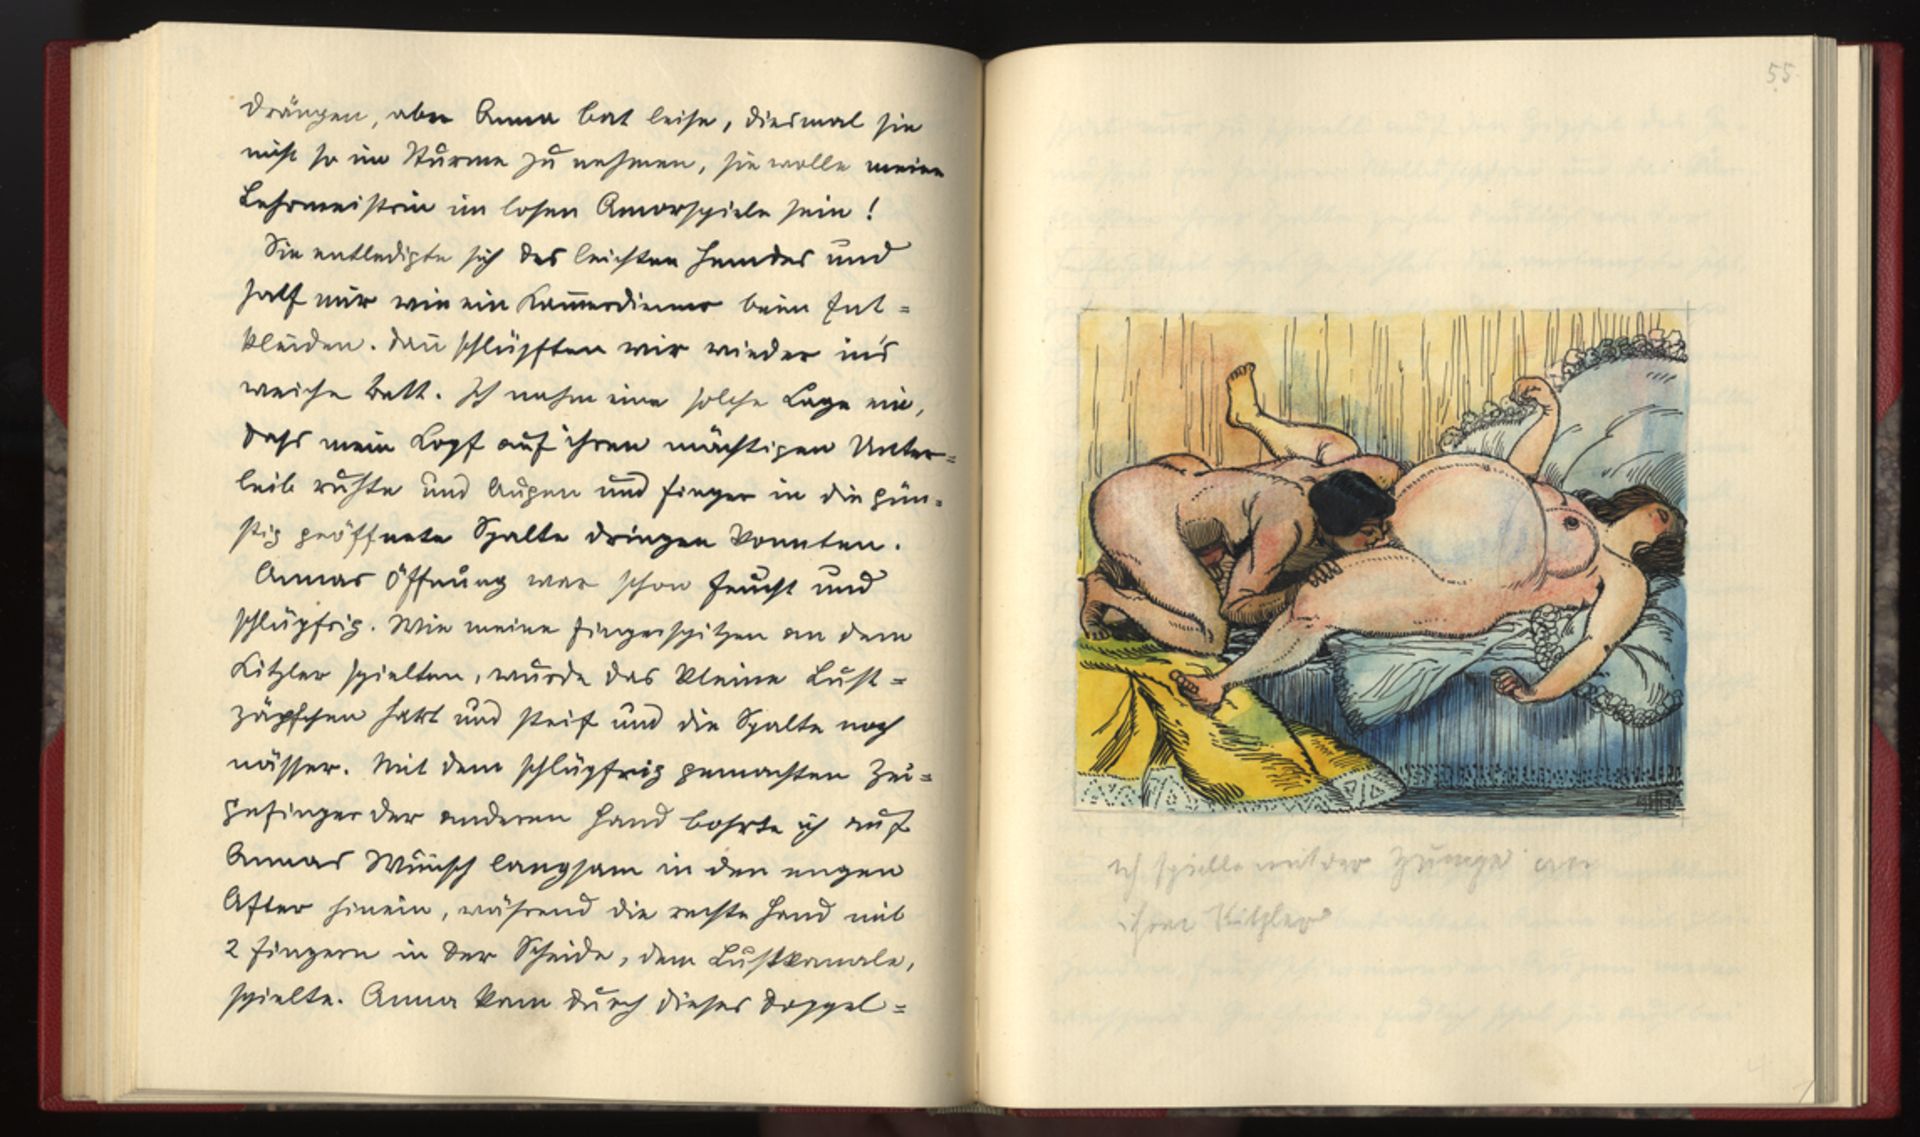 55.
drängen, aber Anna bat leise, diesmal sie
nicht so im Sturme zu nehmen, sie wolle meine
Lehrmeisterin im losen Amorspiele sein!
Sie entledigte sich des leichten Hemdes und
half mir wie ein Kam̅erdiener beim Ent=
kleiden. Dan̅ schlüpften wir wieder in's
weiche Bett. Ich nahm eine solche Lage ein,
dass mein Kopf auf ihren mächtigen Unter=
leib ruhte und Augen und Finger in die gün=
stig geöffnete Spalte dringen konnten.
Annas Öffnung war schon feucht und
schlüpfrig. Wie meine Fingerspitzen an dem
Kitzler spielten, wurde das kleine Lust=
zäpfchen hart und steif und die Spalte noch
nässer. Mit dem schlüpfrig gemachten Zei=
gefinger der anderen Hand bohrte ich auf
Annas Wunsch langsam in den engen
After hinein, während die rechte Hand mit
2 Fingern in der Scheide, dem Lustkanale,
spielte. Anna kam durch dieses Doppel=
Ich spielte mit der Zunge an
ihrer Kitzler